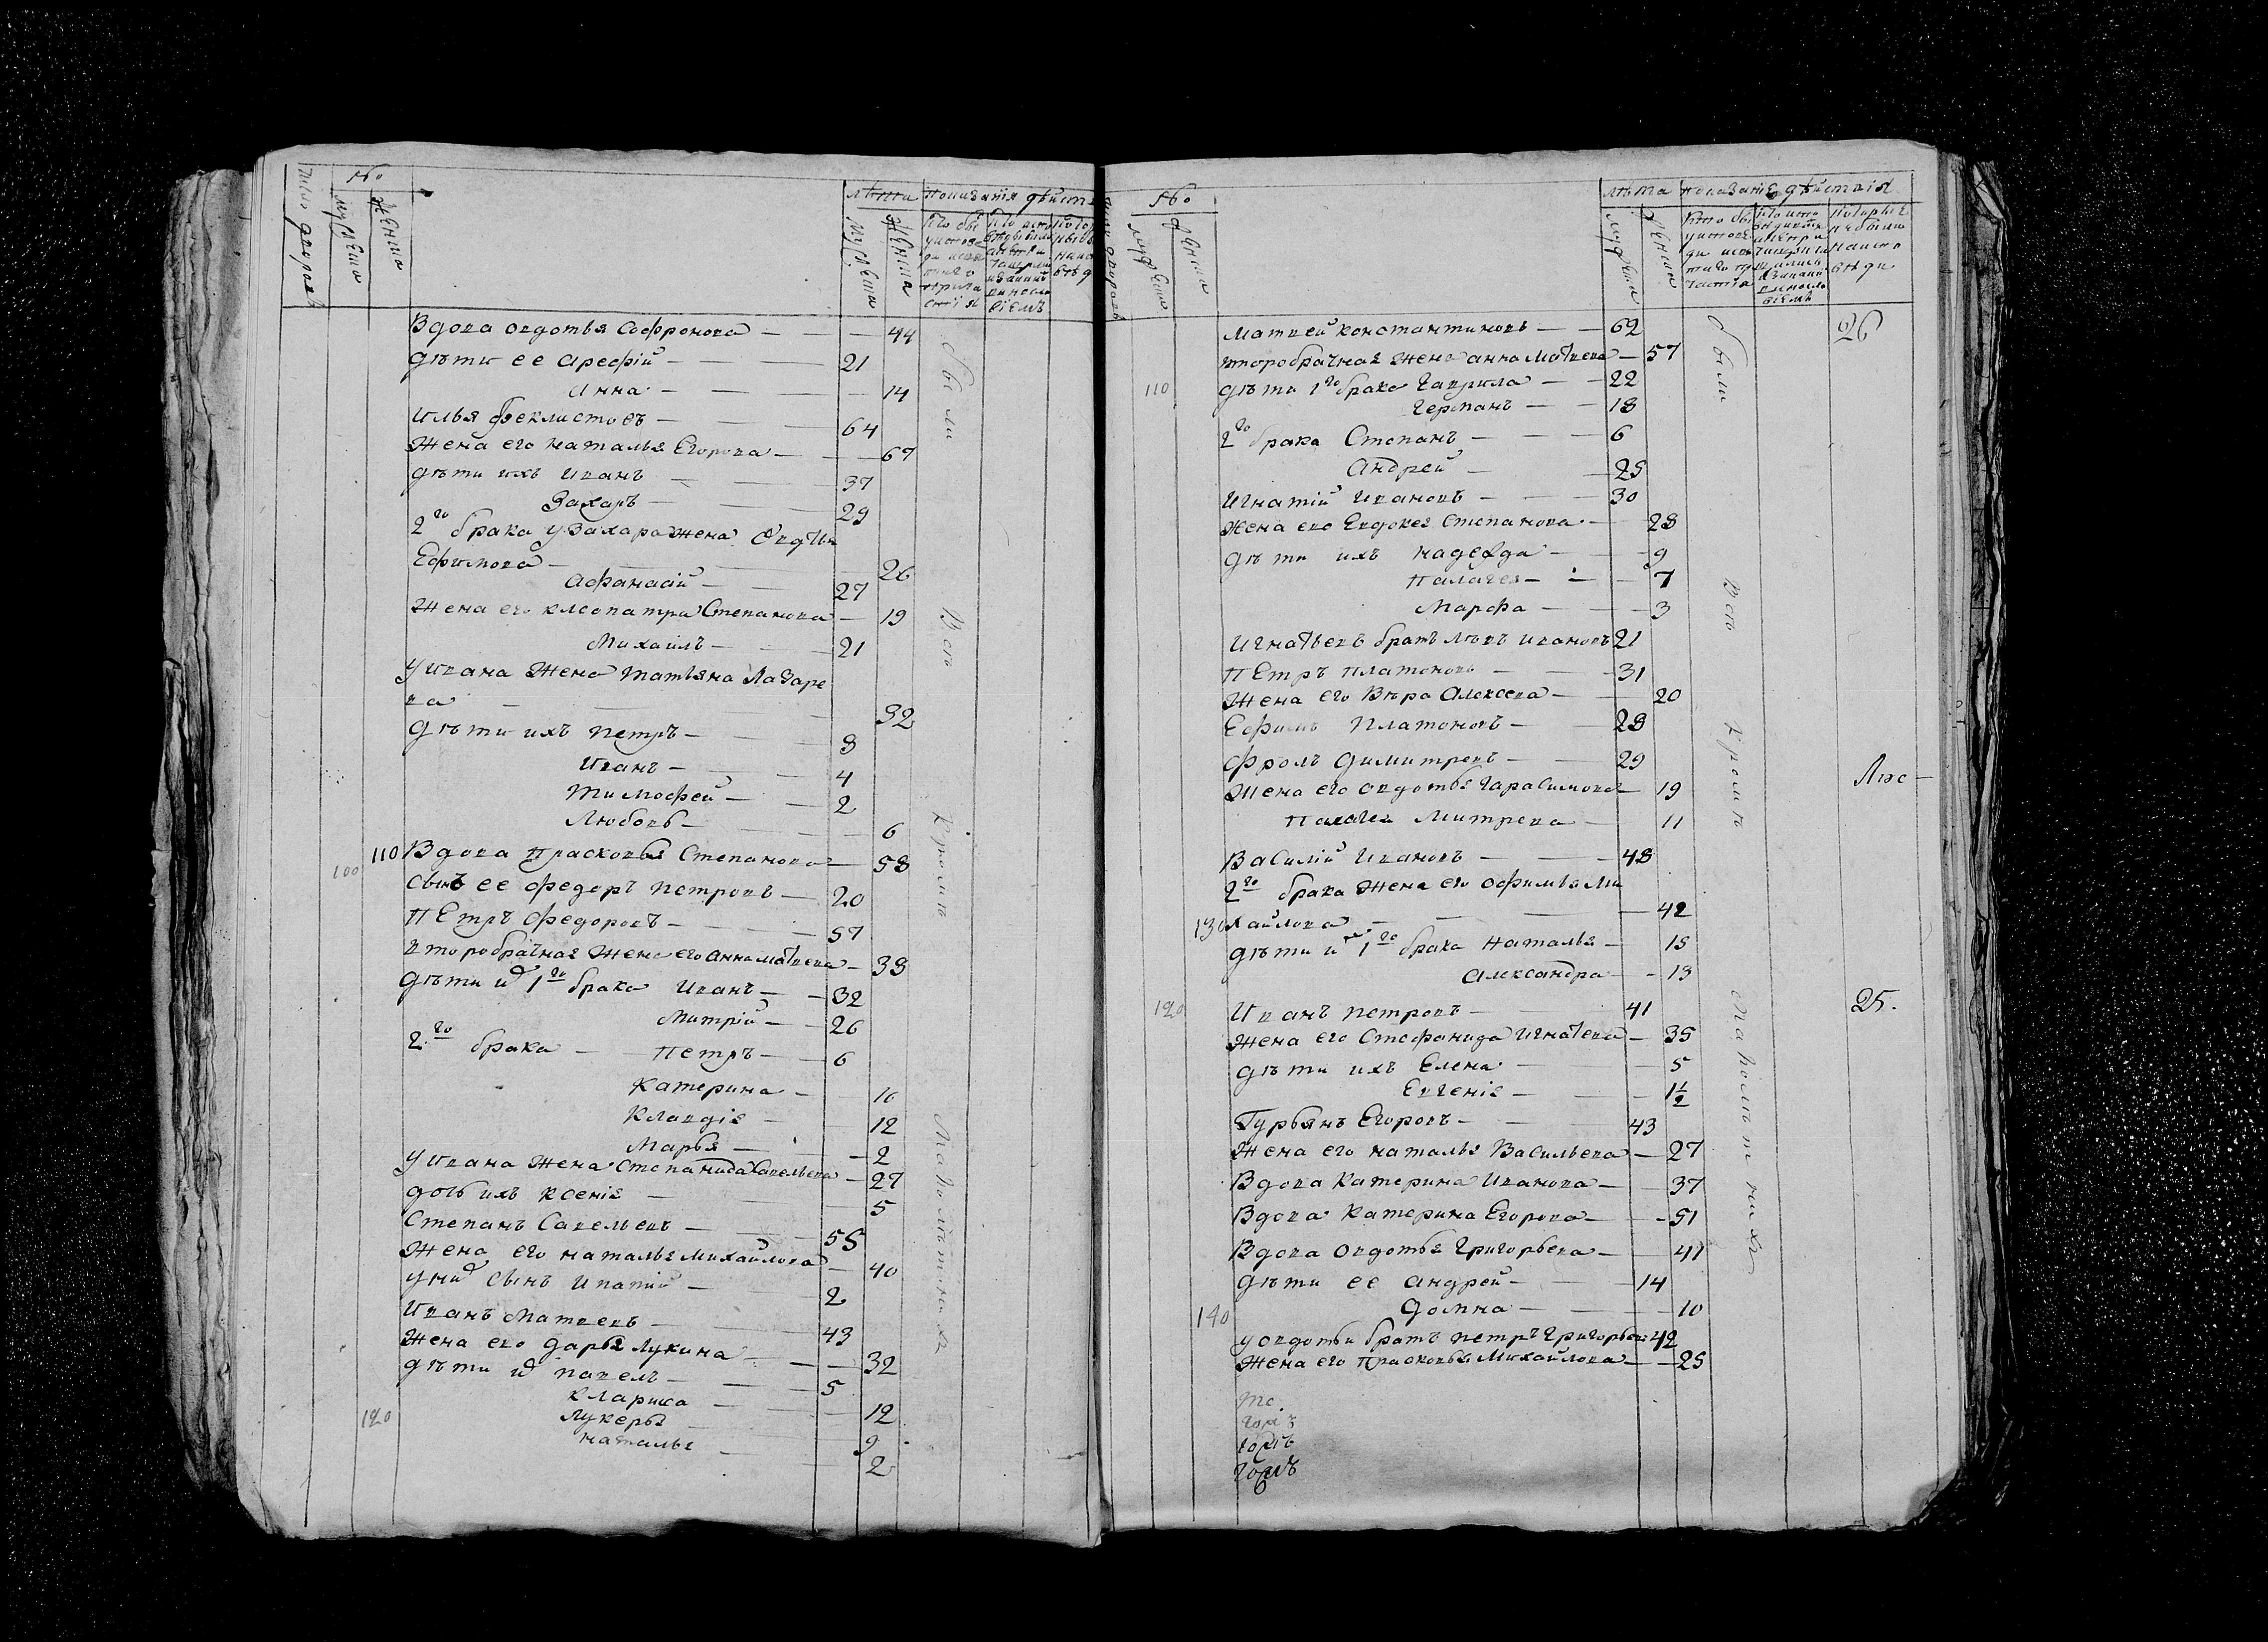 №
лѣта показанія дѣйст
число дворовъ
мужеска
женска
мужеска
женска
Вдова Овдотья Софронова — 44
дѣти ее Арефій — 21
Анна — 14
Илья Феклистовъ — 64
Жена его Наталья Егорова — 67
дѣти ихъ Иванъ — 37
Захаръ — 29
2го брака у Захара жена
Ефимова — 26
Афанасій — 27
Жена его Клеопатра Степанова — 19
Михаилъ — 21
у Ивана жена Татьяна Лазаре
ва — 32
дѣти ихъ Петръ — 8
Иванъ — 4
Тимофей — 2
Любовь — 6
100 110 Вдова Прасковья Степанова — 58
сынъ ее Федоръ Петровъ — 20
Петръ Федоровъ — 57
второбрачная жена его Анна Матвева — 38
дѣти 1го брака Иванъ — 32
Митрій — 26
2го брака — Петръ — 6
Катерина — 16
Клавдія — 12
Марья — 2
у Ивана жена Степанида Савельева — 27
дочь ихъ Ксенія — 5
Степанъ Савельевъ — 55
Жена его Наталья Михайлова — 40
сынъ Ипатій — 2
Иванъ Матвеевъ — 43
Жена его Дарья Лукина — 32
дѣти Павелъ — 5
Клариса — 12
Лукерья — 9
120
Наталья — 2
были
Всѣ
кромѣ
малолѣтных
№
лѣта показаніе дѣйствія
число дворовъ
мужеска
женска
мужеска
женска
Матвей Константиновъ — 62
второбрачная жена Анна Матвева — 57
110 дѣти 1го брака Гаврила — 22
Германъ — 18
2го брака Степанъ — 6
Андрей — 25
Игнатій Ивановъ — 30
Жена его Евдокея Степанова — 28
дѣти ихъ Надежда — 9
Палагея — 7
Марфа — 3
Игнатьевъ братъ Левъ Ивановъ 21
Петръ Платоновъ — 31
Жена его Вѣра Алексеева — 20
Ефимъ Платоновъ — 28
Фролъ Димитревъ — 29
Жена его Овдотья Гарасимова — 19
Палагея Митрева — 11
Василій Ивановъ — 48
2го брака жена его Офимья Ми
130 хайлова — 42
дѣти 1го брака Наталья — 15
Александра — 13
120 Иванъ Петровъ — 41
Жена его Стефанида Игнатева — 35
дѣти ихъ Елена — 5
Евгенія — 1½
Гурьянъ Егоровъ — 43
Жена его Наталья Васильева — 27
Вдова Катерина Иванова — 37
Вдова Катерина Егорова — 51
Вдова Овдотья Григорьева — 41
дѣти ее Андрей — 14
Домна — 10
140
у Овдотьи братъ Петръ Григорьевъ 42
Жена его Прасковья Михайлова — 25
были
Всѣ
кромѣ
малолѣтних
25.